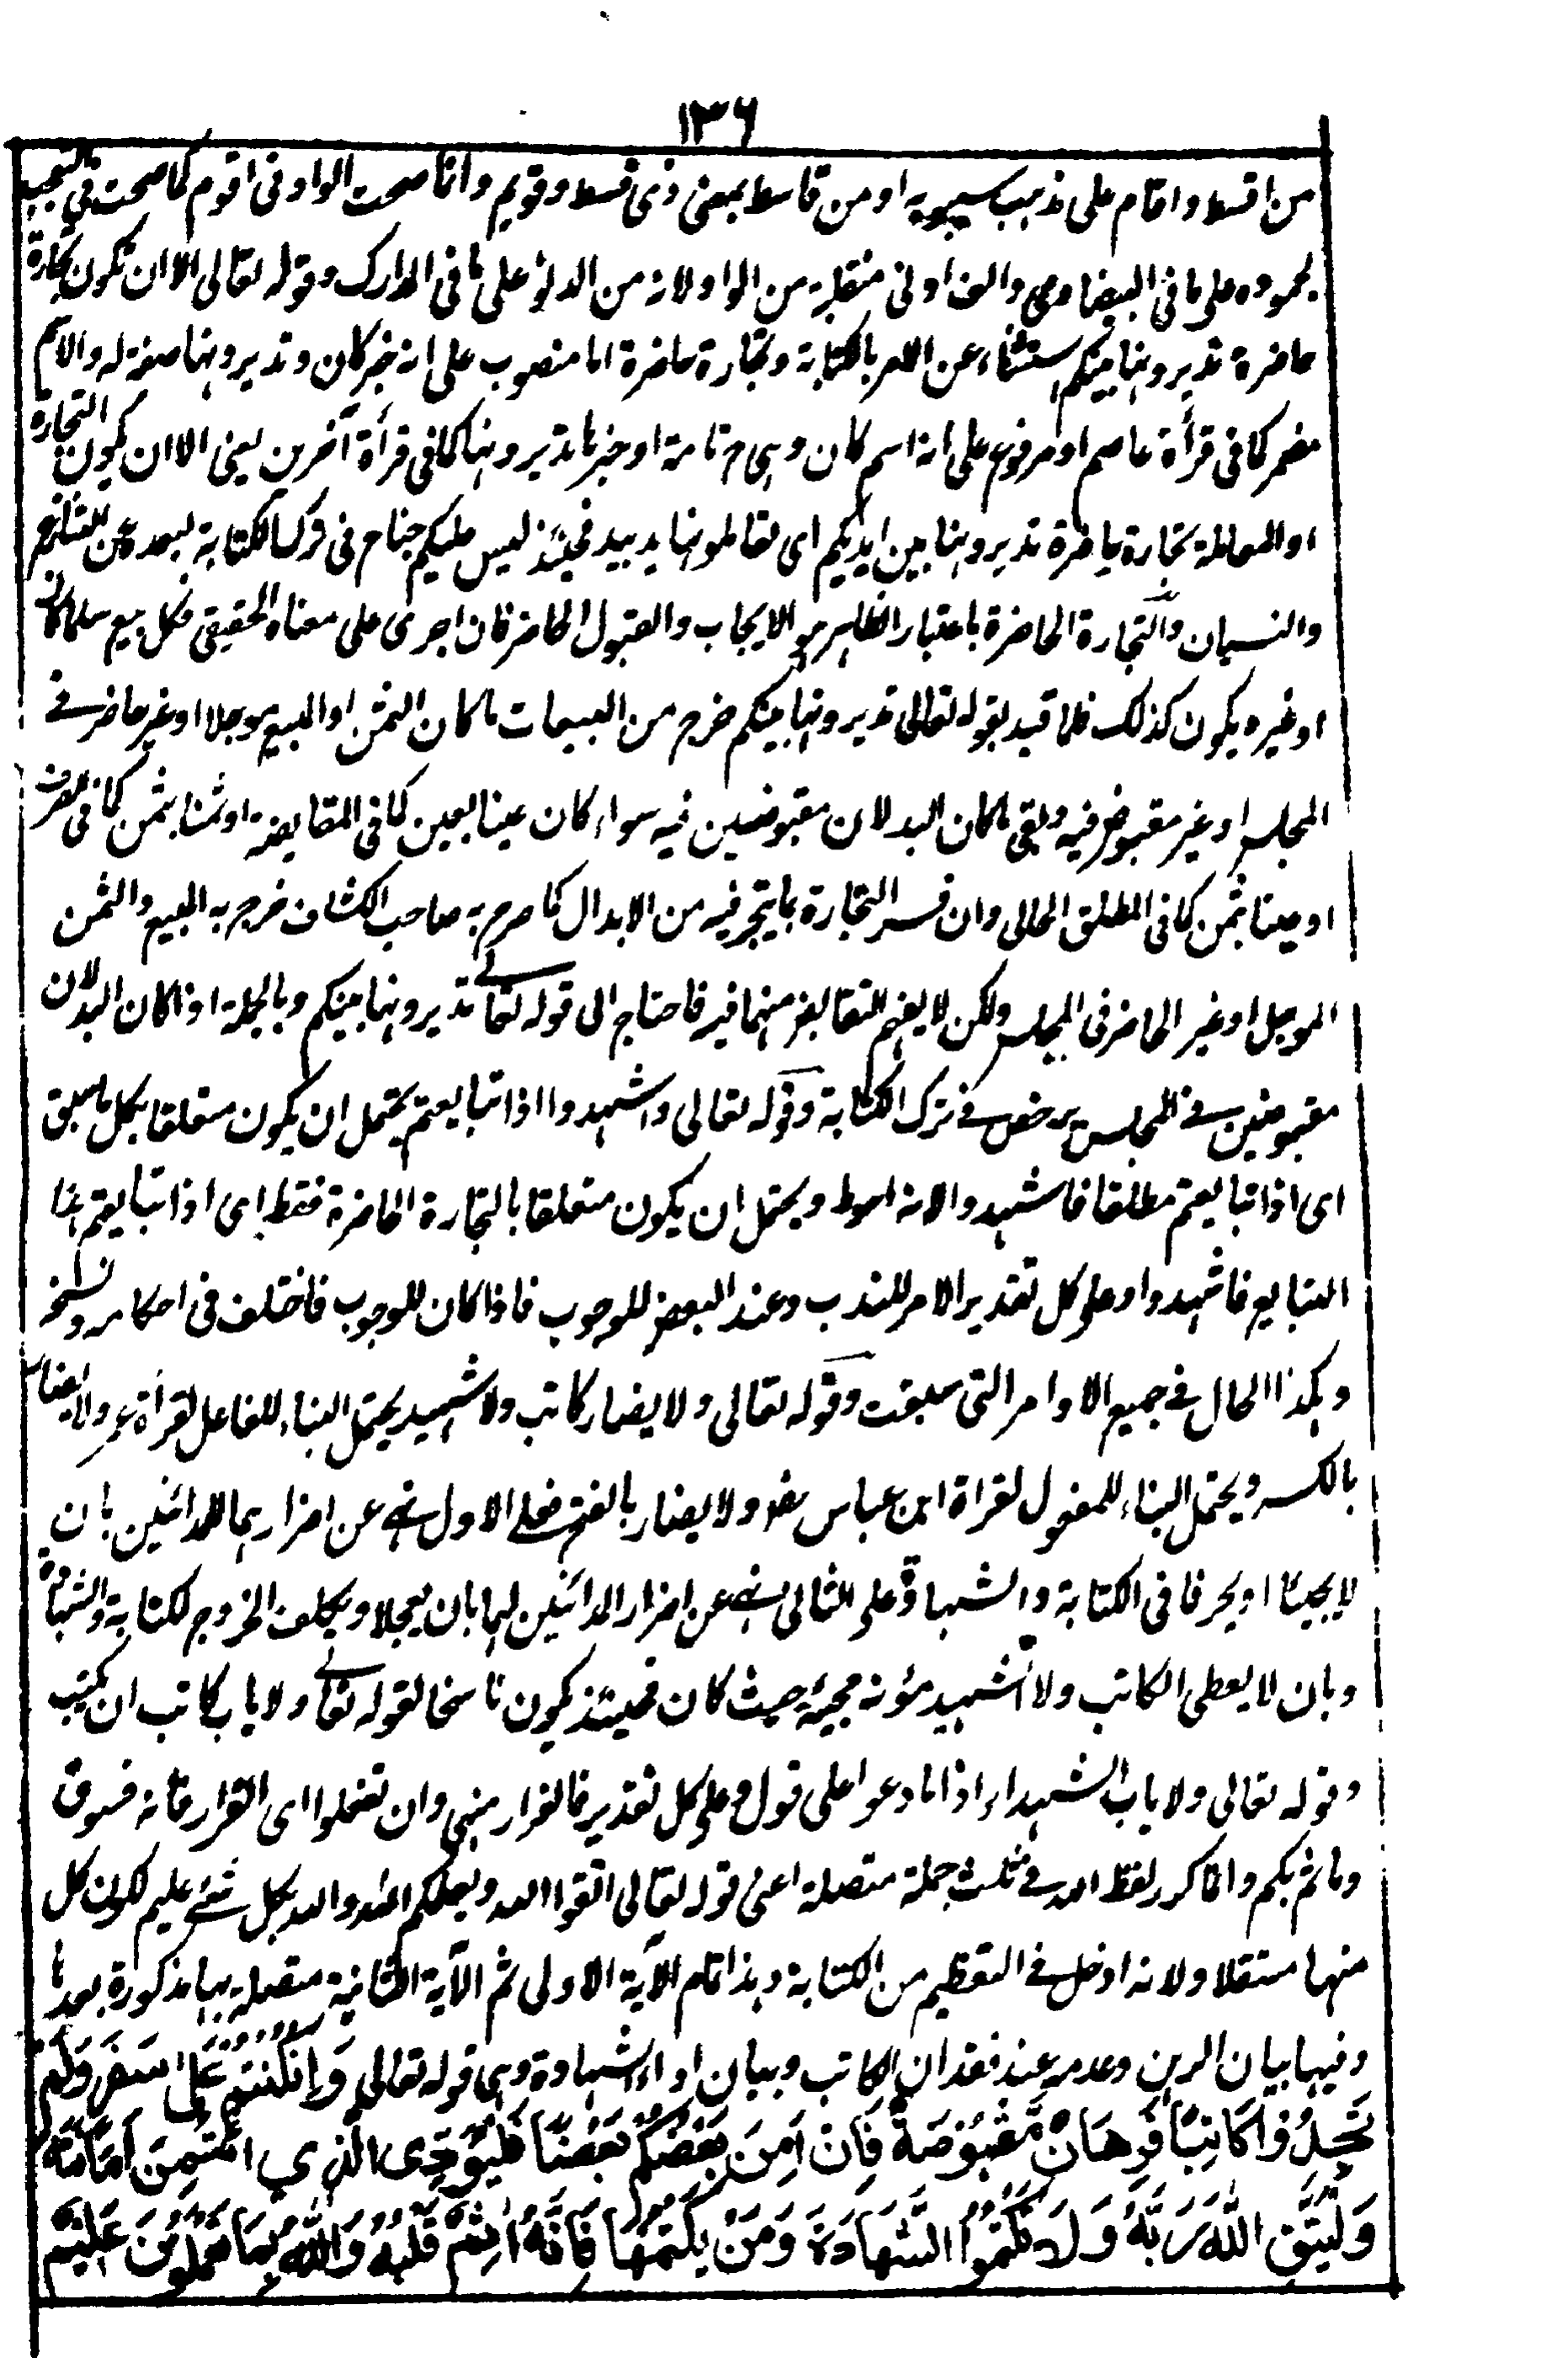 ١٣٦
من اقسط واقام على مذهب سيبويه او من قاسط بمعنى ذى قسط وقويم وانما صحت الواو فى اقوم كما صحت فى التعجب
لجموده على ما فى البيضاوى والف ادنى منقلبة من الواو لانه من الدنو على ما فى المدارك وقوله تعالى الا ان تكون تجارة
حاضرة تديرونها بينكم استثناء عن الامر بالكتابة وتجارة حاضرة اما منصوب على انه خبر كان وتديرونها صفة له والاسم
مضمر كما فى قرأة عاصم او مرفوع على انه اسم كان وهى ح تامة او خبرها تديرونها كما فى قرأة آخرين يعنى الا ان تكون التجارة
او المعاملة تجارة حاضرة تديرونها بين ايديكم اى تعاملونها يد بيد فحينئذ ليس عليكم جناح فى ترك الكتابة لبعده عن التنازع
والنسيان والتجارة الحاضرة باعتبار الظاهر هو الايجاب والقبول الحاضر فان اجرى على معناه الحقيقى فكل بيع سلما كان
او غيره يكون كذلك فلما قيد بقوله تعالى تديرونها بينكم خرج من البيعات ما كان الثمن او المبيع موجلا او غير حاضر فے
المجلس او غير مقبوض فيه وبقى ما كان البدلان مقبوضين فيه سواء كان عينا بعين كما فى المقايضة او ثمنا بثمن كما فى الصرف
او عينا بثمن كما فى المطلق الحالى وان فسر التجارة بما يتجر فيه من الابدال كما صرح به صاحب الكشاف خرج به المبيع والثمن
الموجل او غير الحاضر فى المجلس ولكن لا يفهم التقابض منهما فيه فاحتاج الى قوله تعالے تديرونها بينكم وبالجملة اذا كان البدلان
مقبوضين فے المجلس يرخص فے ترك الكتابة وقوله تعالى واشهدوا اذا تبايعتم يحتمل ان يكون متعلقا بكل ما سبق
اى اذا تبايعتم مطلقا فاشهدوا لانه احوط ويحتمل ان يكون متعلقا بالتجارة الحاضرة فقط اى اذا تبايعتم هذا
التبايع فاشهدوا وعلى كل تقدير الامر للندب وعند البعض للوجوب فاذا كان للوجوب فاختلف فى احكامه ونسخه
وهكذا الحال فے جميع الاوامر التى سبقت وقوله تعالى ولا يضار كاتب ولا شهيد يحتمل البناء للفاعل لقرأة عمر ولا يضار
بالكسر ويحتمل البناء للمفعول لقراة ابن عباس رض ولا يضار بالفتح فعلى الاول نهى عن اضرارهما للمدائنين بان
لا يجيبا او يحرفا فى الكتابة والشهادة وعلى الثانى نهى عن اضرار المدائنين لهما بان يعجلا ويكلف الخروج لكتابة والشهادة
وبان لا يعطى الكاتب ولا الشهيد مؤنة مجيئه حيث كان فحينئذ يكون ناسخا لقوله تعالے ولا ياب كاتب ان يكتب
وقوله تعالى ولا ياب الشهداء اذا ما دعوا على قول وعلى كل تقدير فالضرار منهى وان تفعلوا اى الضرار فانه فسوق
وماثم بكم وانما كرر لفظ الله فے ثلث جملة متصلة اعنى قوله تعالى اتقوا الله ويعلمكم الله والله بكل شئ عليم لكون كل
منها مستقلا ولانه ادخل فے التعظيم من الكتابة وهذا تمام الآية الاولى ثم الآية الثانية متصلة بها مذكورة بعدها
وفيها بيان الرهن وعدمه عند فقدان الكاتب وبيان اداء الشهادة وهى قوله تعالى وَاِنْ كُنْتُمْ عَلٰى سَفَرٍ وَّلَمْ
تَجِدُوْا كَاتِبًا فَرِهَانٌ مَّقْبُوْضَةٌ فَاِنْ اَمِنَ بَعْضُكُمْ بَعْضًا فَلْيُؤَدِّى الَّذِي اؤْتُمِنَ اَمَانَتَهُ
وَلْيَتَّقِ اللّٰهَ رَبَّهُ وَلَا تَكْتُمُوا الشَّهَادَةَ وَمَنْ يَكْتُمْهَا فَاِنَّهُ اٰثِمٌ قَلْبُهُ وَاللّٰهُ بِمَا تَعْمَلُوْنَ عَلِيْمٌ